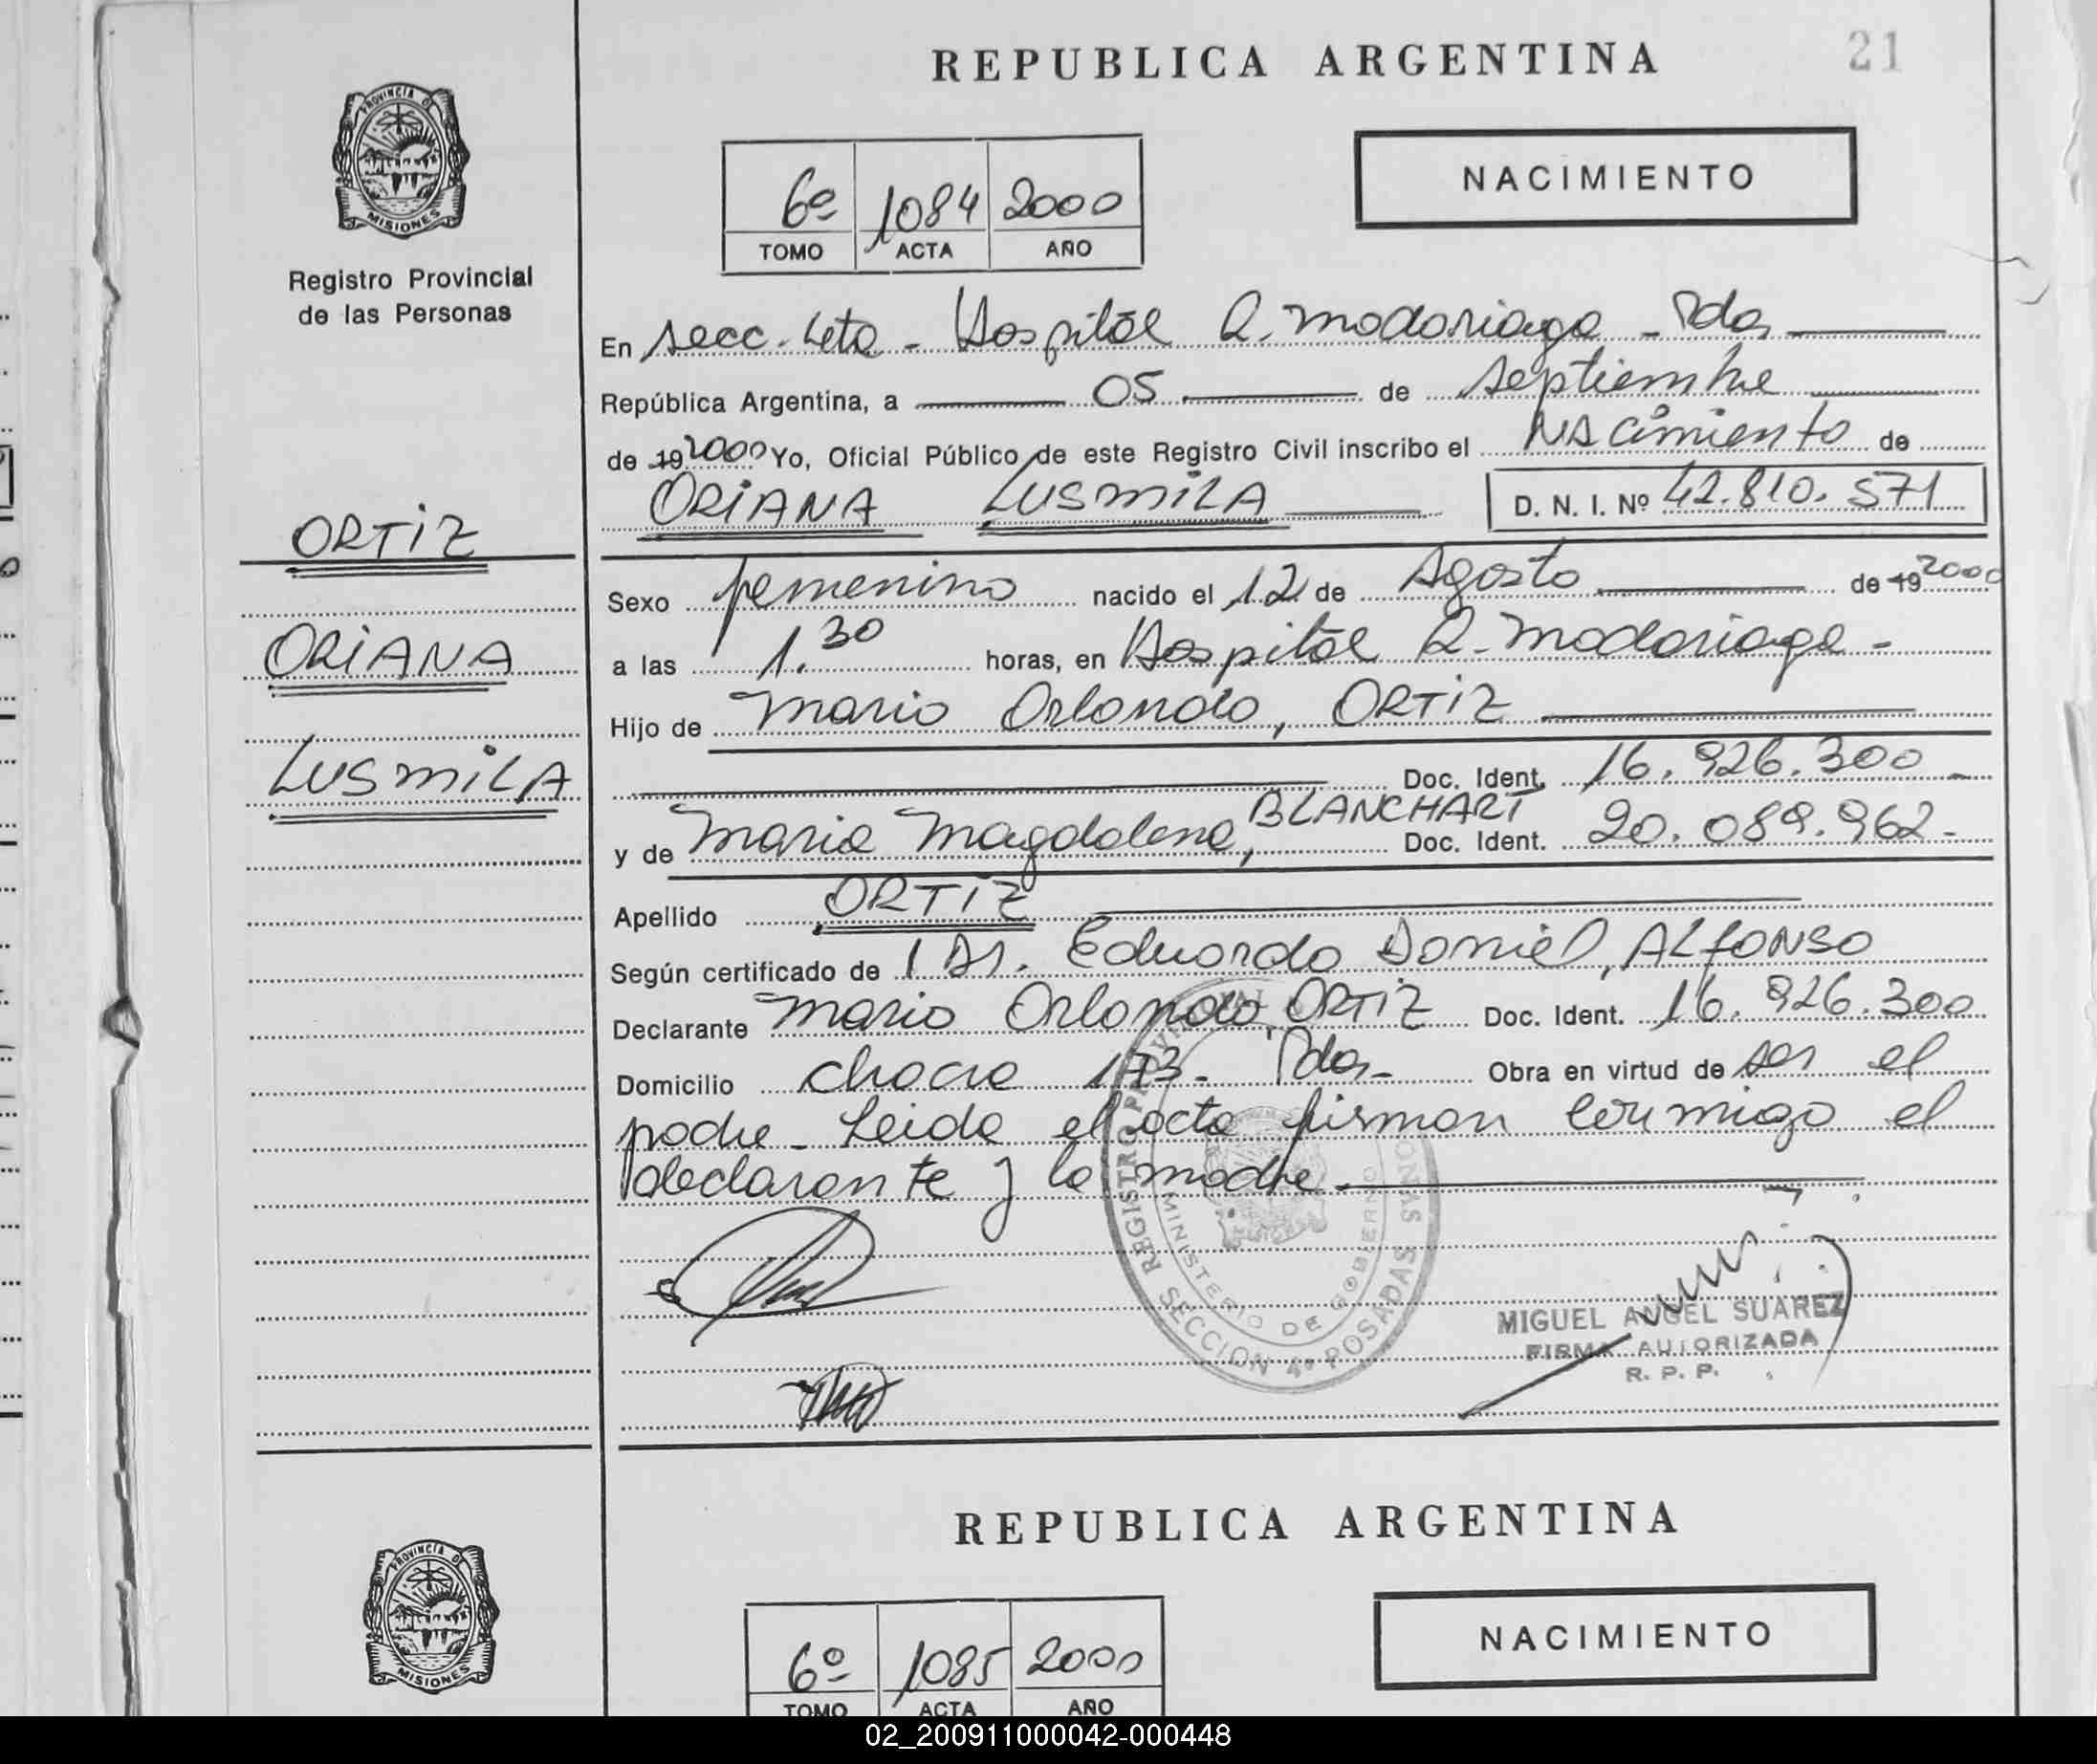 REPUBLICA ARGENTINA
21
PROVINCIA DE
MISIONES
Registro Provincial
de las Personas
6º 1084 2000
TOMO ACTA AÑO
NACIMIENTO
En secc. 4ta - Hospital R. Madariaga - Pdas
República Argentina, a 05 de septiembre
de 19 2000 Yo, Oficial Público de este Registro Civil inscribo el Nacimiento de
ORIANA LUSMILA D. N. I. Nº 42.810.571
ORTIZ
ORIANA
LUSMILA
Sexo femenino nacido el 12 de Agosto de 19 2000
a las 1.30 horas, en Hospital R. Madariaga -
Hijo de Mario Orlando, ORTIZ
Doc. Ident. 16.926.300 -
y de Maria Magdalena, BLANCHART Doc. Ident. 20.089.962 -
Apellido ORTIZ
Según certificado de / Dr. Eduardo Daniel, ALFONSO
Declarante Mario Orlando, ORTIZ Doc. Ident. 16.926.300
Domicilio chacra 173 - Pdas - Obra en virtud de ser el
padre - Leida el acta firman conmigo el
declarante y la madre -
REGISTRO PROVINCIAL
MINISTERIO DE GOBIERNO
SECCION 4º POSADAS
MIGUEL ANGEL SUAREZ
FIRMA AUTORIZADA
R. P. P.
REPUBLICA ARGENTINA
PROVINCIA DE
MISIONES
6º 1085 2000
TOMO ACTA AÑO
NACIMIENTO
02_200911000042-000448